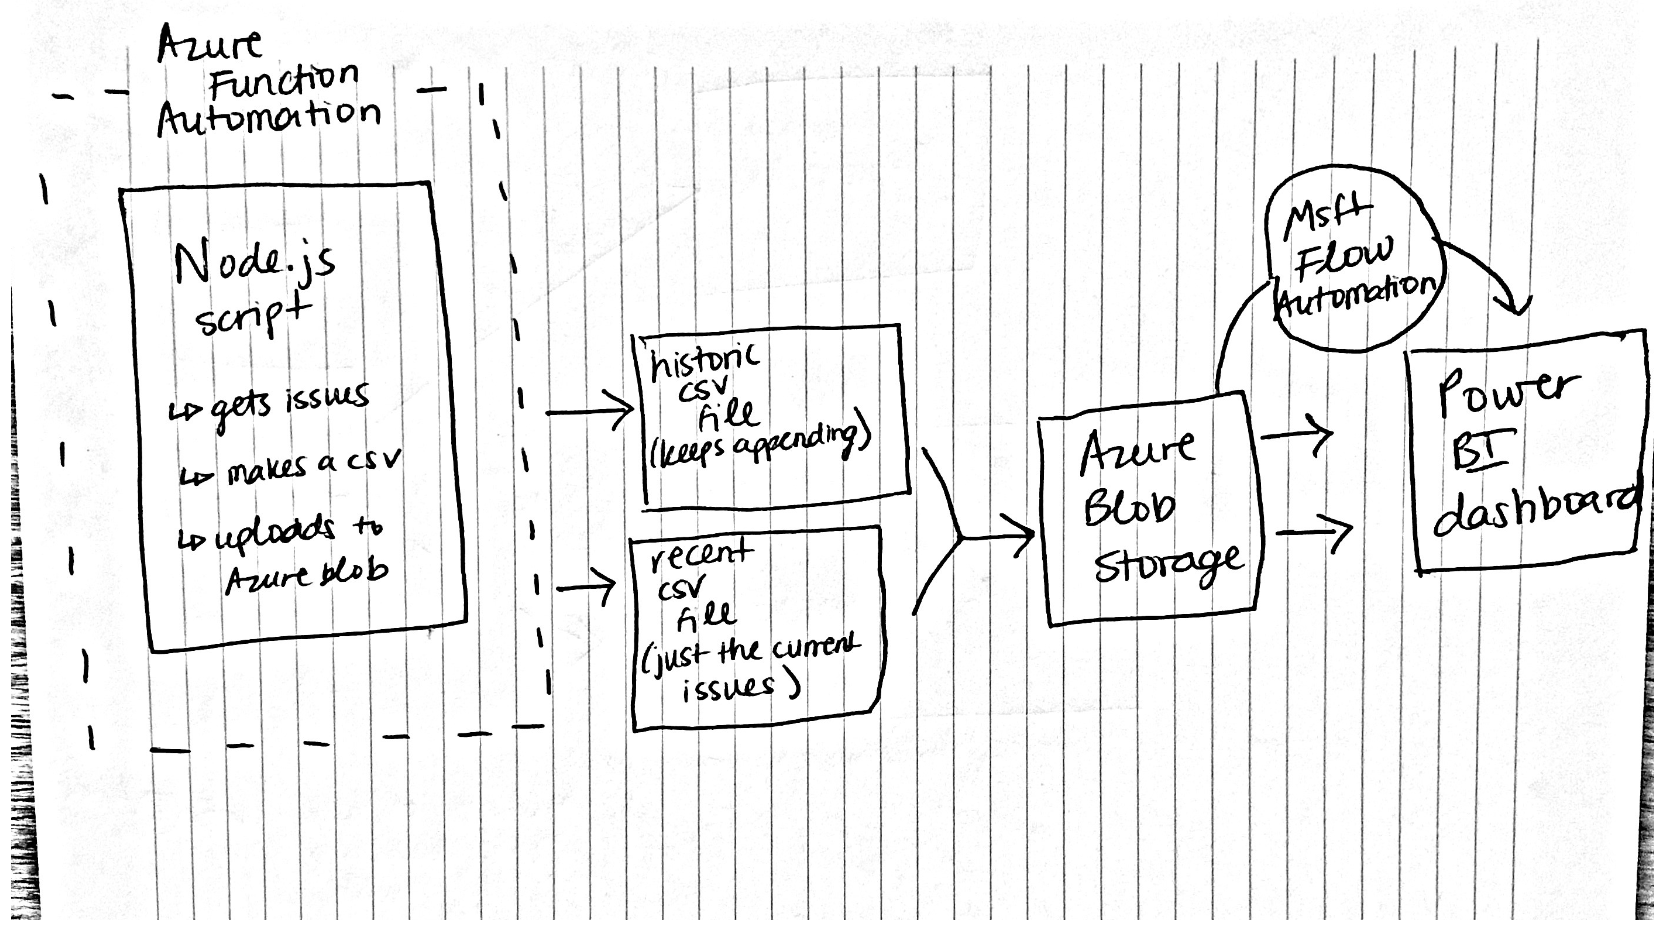 Azure
Function
Automation
Node.js
script
↳ gets issues
↳ makes a csv
↳ uploads to
Azure blob
historic
csv
file
(keeps appending)
recent
csv
file
(just the current
issues)
Azure
Blob
Storage
Msft
Flow
Automation
Power
BI
dashboard